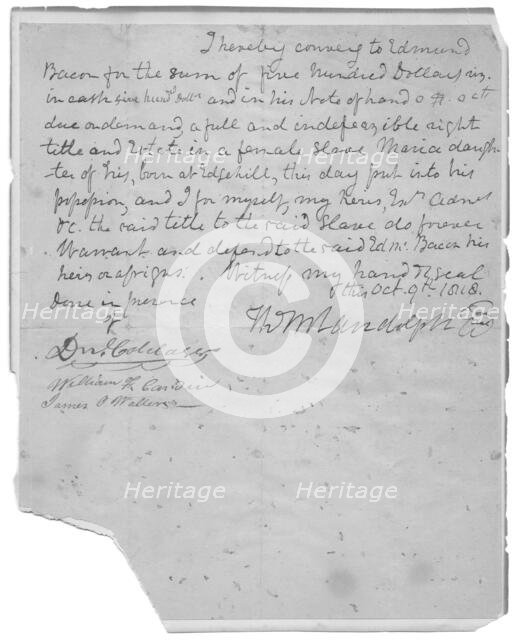 I hereby convey to Edmund
Bacon for the sum of five hundred Dollars viz.
in cash five hund.d Doll.s and in his Note of hand
due on demand a full and indefeazible right
title and Estate in a female Slave, Maria daugh
ter of Iris, born at Edgehill, this day put into his
possession, and I for myself, my heirs, Ex.rs Adm.rs
&c. the said title to the said Slave do forever
Warrant and defend to the said Edm. Bacon his
heirs or assigns. Witness my hand & seal
this Oct. 9th. 1818.
Done in presence
of
Th M Randolph
William
James
Heritage
Heritage
Heritage
Heritage
Heritage
Heritage
Heritage
Heritage
Heritage